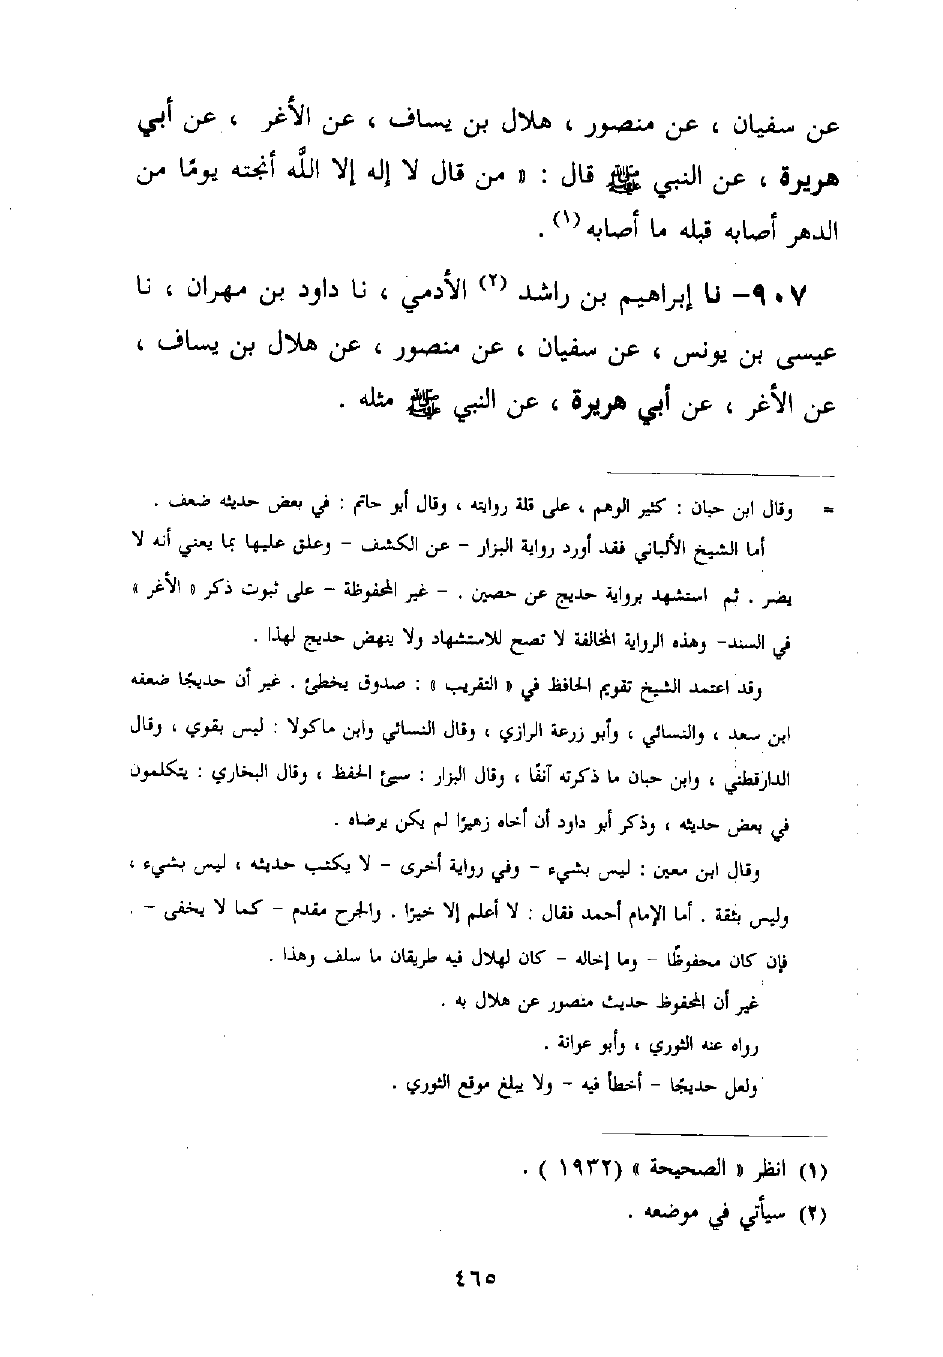 عن سفيان ، عن منصور ، هلال بن يساف ، عن الأغر ، عن أبي
هريرة ، عن النبي ﷺ قال : « من قال لا إله إلا اللَّه أنجته يومًا من
الدهر أصابه قبله ما أصابه(١) .
٩٠٧- نا إبراهيم بن راشد (٢) الأدمي ، نا داود بن مهران ، نا
عيسى بن يونس ، عن سفيان ، عن منصور ، عن هلال بن يساف ،
عن الأغر ، عن أبي هريرة ، عن النبي ﷺ مثله .
= وقال ابن حبان : كثير الوهم ، على قلة روايته ، وقال أبو حاتم : في بعض حديثه ضعف .
أما الشيخ الألباني فقد أورد رواية البزار - عن الكشف - وعلق عليها بما يعني أنه لا
يضر . ثم استشهد برواية حديج عن حصين . - غير المحفوظة - على ثبوت ذكر « الأغر »
في السند- وهذه الرواية المخالفة لا تصح للاستشهاد ولا ينهض حديج لهذا .
وقد اعتمد الشيخ تقويم الحافظ في « التقريب » : صدوق يخطئ . غير أن حديجًا ضعفه
ابن سعد ، والنسائي ، وأبو زرعة الرازي ، وقال النسائي وابن ماكولا : ليس بقوي ، وقال
الدارقطني ، وابن حبان ما ذكرته آنفًا ، وقال البزار : سيئ الحفظ ، وقال البخاري : يتكلمون
في بعض حديثه ، وذكر أبو داود أن أخاه زهيرًا لم يكن يرضاه .
وقال ابن معين : ليس بشيء - وفي رواية أخرى - لا يكتب حديثه ، ليس بشيء ،
وليس بثقة . أما الإمام أحمد فقال : لا أعلم إلا خيرًا . والجرح مقدم - كما لا يخفى - .
فإن كان محفوظًا - وما إخاله - كان لهلال فيه طريقان ما سلف وهذا .
غير أن المحفوظ حديث منصور عن هلال به .
رواه عنه الثوري ، وأبو عوانة .
ولعل حديجًا - أخطأ فيه - ولا يبلغ موقع الثوري .
(١) انظر « الصحيحة » (١٩٣٢ ) .
(٢) سيأتي في موضعه .
٤٦٥